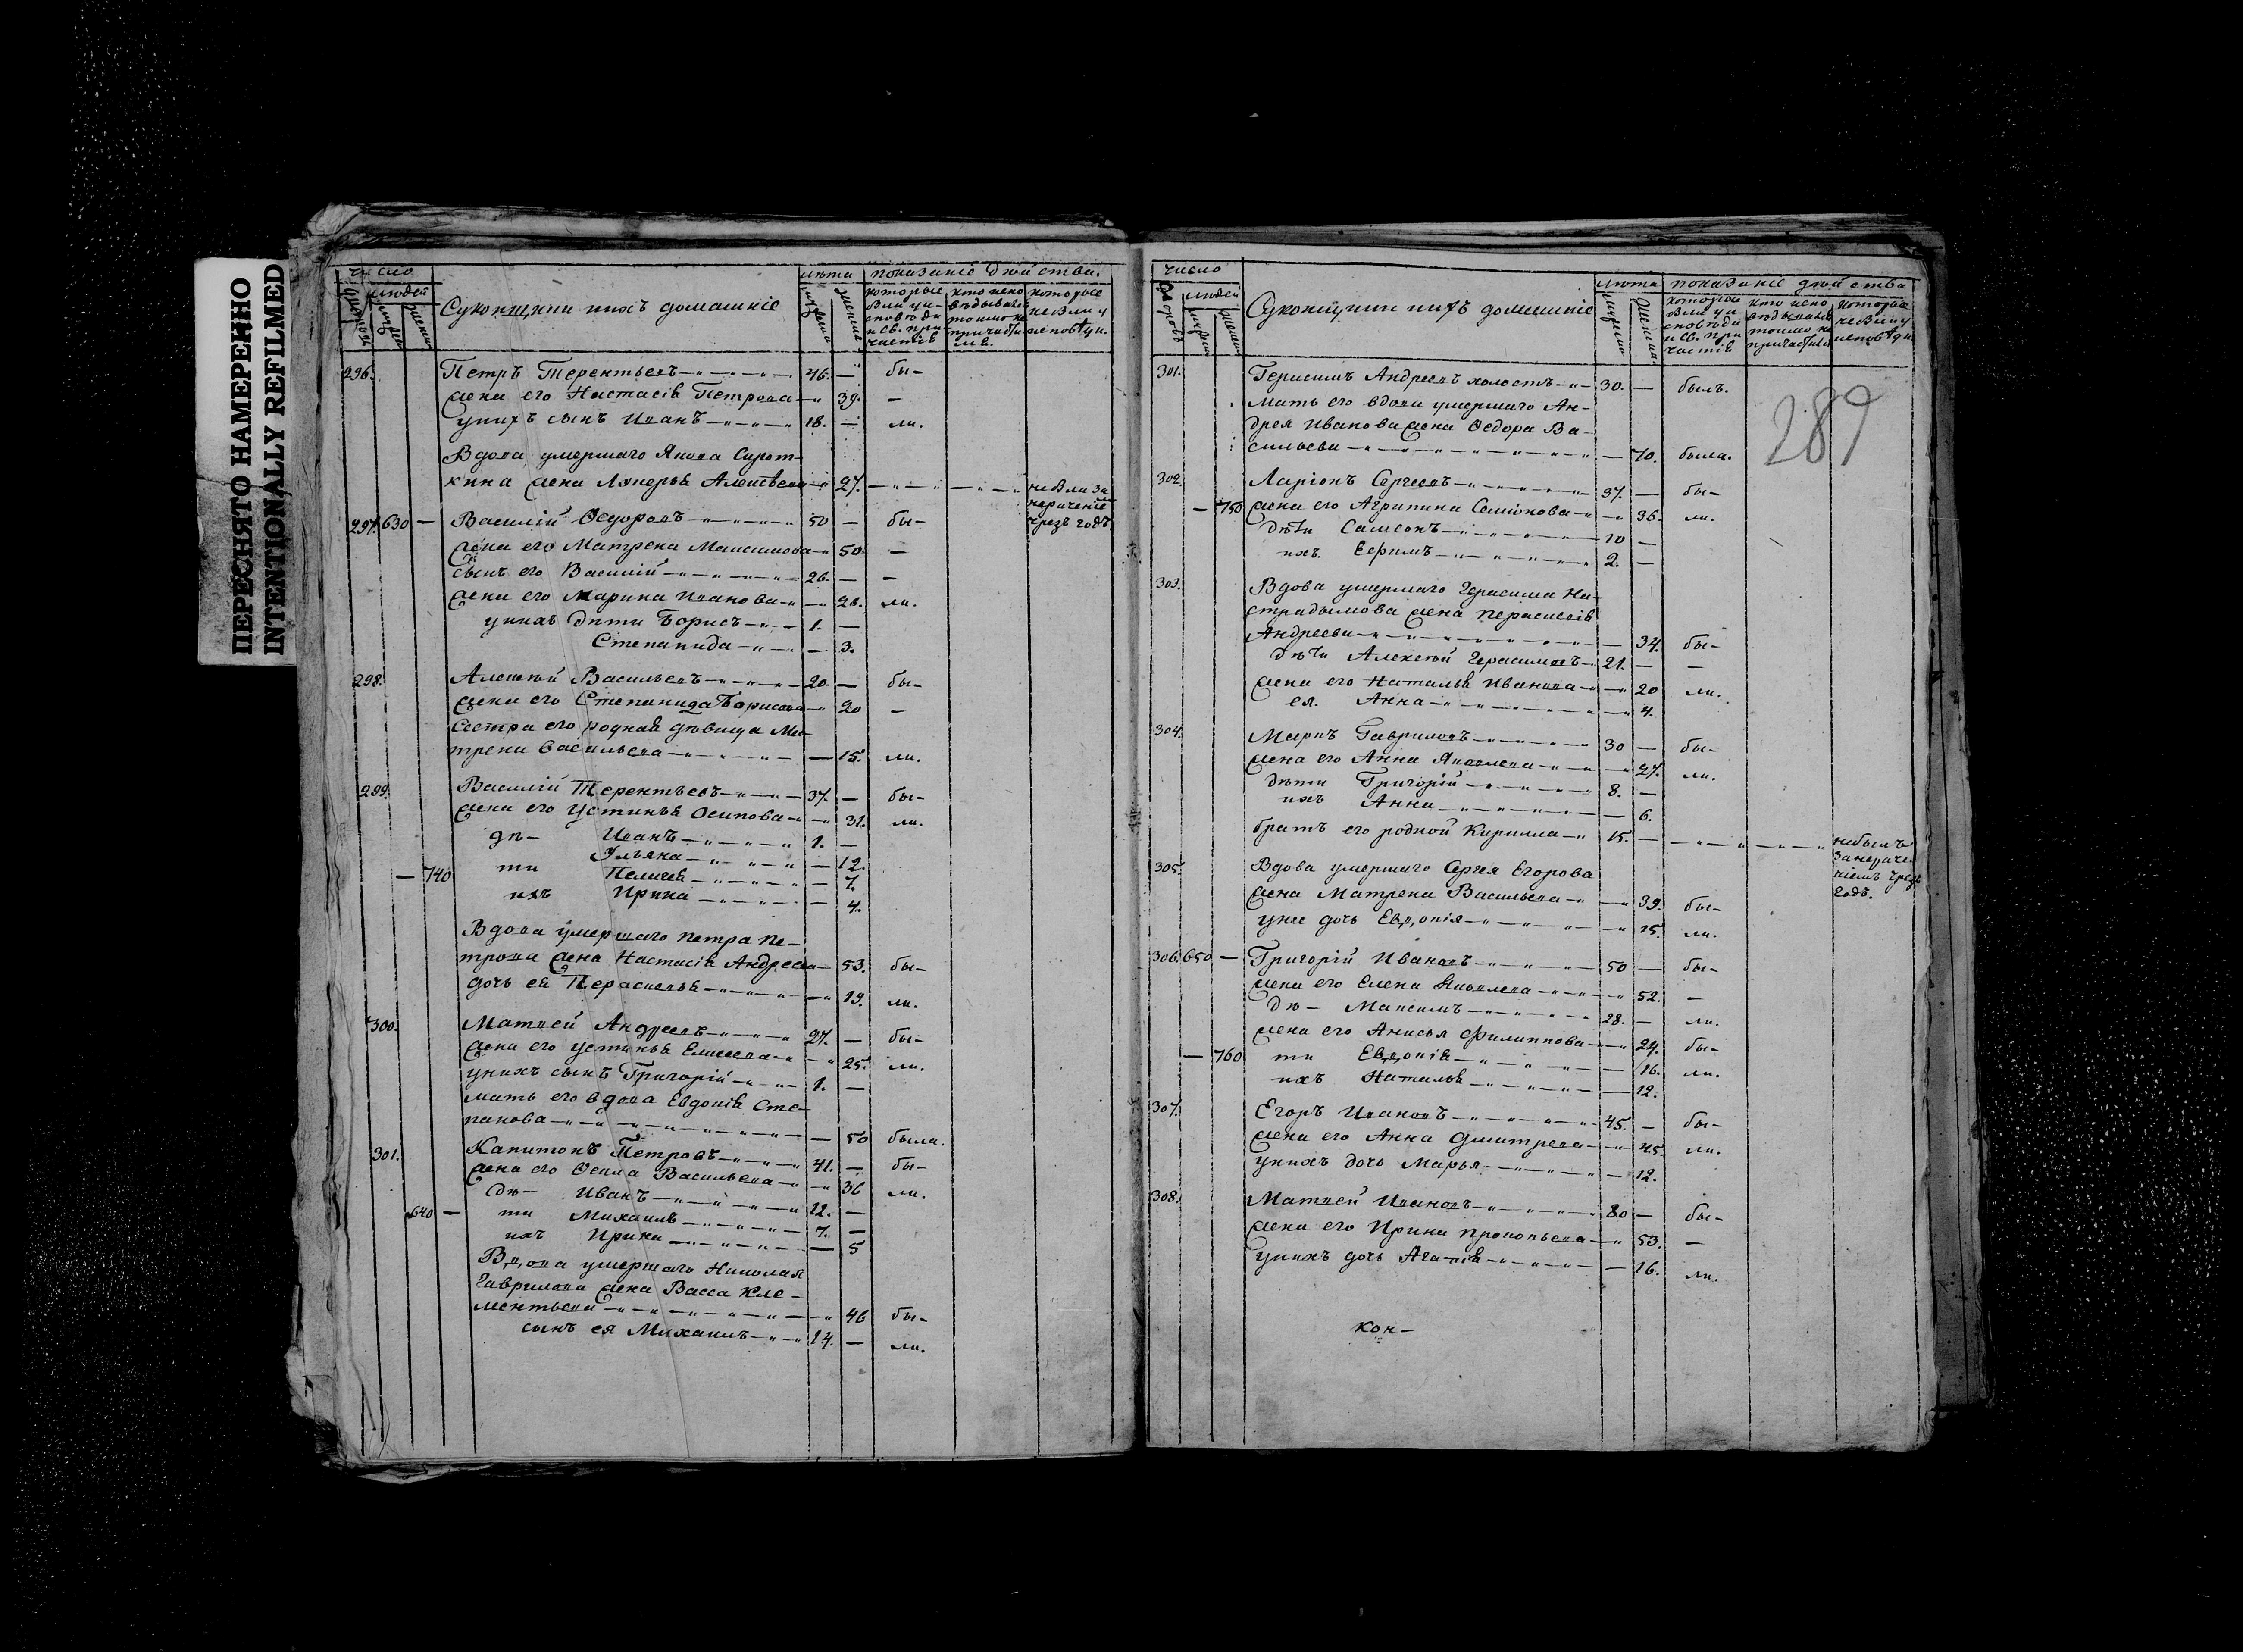 ПЕРЕСНЯТО НАМЕРЕННО
INTENTIONALLY REFILMED
число лѣта показаніе дѣйства.
людей
Суконщики и ихъ домашніе
которые были у исповѣди и св. причастія
кто исповѣдывался токмо не причастился
которые не были у исповѣди.
296. Петръ Терентьевъ 46. — бы-
жена его Настасія Петрова — 39. —
у нихъ сынъ Иванъ 18. — ли.
Вдова умершаго Якова Сирот-
кина жена Лукерья Алексѣева — 27. не была за
нераченіемъ
чрезъ годъ
297. 630 — Василій Ѳедоровъ 50 — бы-
жена его Матрена Максимова — 50 —
сынъ его Василій 26. — —
жена его Марина Иванова — 28. ли.
у нихъ дѣти Борисъ 1. —
Степанида — 3.
298. Алексѣй Васильевъ 20. — бы-
жена его Степанида Борисова — 20 —
Сестра его родная дѣвица Ма-
трена Васильева — 15. ли.
299. Василій Терентьевъ 37. — бы-
жена его Устинья Осипова — 31. ли.
дѣ- Иванъ 1. —
Ульяна — 12.
— 740 ти Пелагея — 7.
ихъ Ирина — 4.
Вдова умершаго Петра Пе-
трова жена Настасія Андреева — 53. бы-
дочь ея Парасковья — 19. ли.
300. Матвей Андреевъ 27. — бы-
жена его Устинья Елисеева — 25. ли.
у нихъ сынъ Григорій 1. —
мать его вдова Евдокія Сте-
панова — 50 была.
301. Капитонъ Петровъ 41. — бы-
жена его Ѳекла Васильева — 36 ли.
дѣ- Иванъ 12. —
640 — ти Михаилъ 7. —
ихъ Ирина — 5
Вдова умершаго Николая
Гаврилова жена Васса Кле-
ментьева — 46 бы-
сынъ ея Михаилъ 14. — ли.
число лѣта показаніе дѣйства
людей
Суконщики и ихъ домашніе
которые были у исповѣди и св. причастія
кто исповѣдывался токмо не причастился
которые не были у исповѣди.
289
301. Герасимъ Андреевъ холостъ 30. — былъ.
Мать его вдова умершаго Ан-
дрея Иванова жена Ѳедора Ва-
сильева — 70. была.
302. Ларіонъ Сергеевъ 37. — бы-
— 750 жена его Агрипина Семіонова — 36. ли.
дѣти Самсонъ 10 —
ихъ Ефимъ 2. —
303. Вдова умершаго Герасима На-
страдымова жена Парасковія
Андреева — 34. бы-
дѣти Алексѣй Герасимовъ 21. — —
жена его Наталья Иванова — 20 ли.
ея Анна — 4.
304. Маркъ Гавриловъ 30 — бы-
жена его Анна Яковлева — 27. ли.
дѣти Григорій 8. —
ихъ Анна — 6.
братъ его родной Кирилла 15. — не былъ
за нераче-
ніемъ чрезъ
годъ.
305. Вдова умершаго Сергея Егорова
жена Матрена Васильева — 39. бы-
у нее дочь Евдокія — 15. ли.
306. 650 — Григорій Ивановъ 50 — бы-
жена его Елена Яковлева — 52. —
дѣ- Максимъ 28. — ли.
жена его Анисья Филиппова — 24. бы-
— 760 ти Евдокія — 16. ли.
ихъ Наталья — 12.
307. Егоръ Ивановъ 45. — бы-
жена его Анна Дмитрева — 45. ли.
у нихъ дочь Марья — 12.
308. Матвей Ивановъ 80 — бы-
жена его Ирина Прокопьева — 53. —
у нихъ дочь Агафія — 16. ли.
кон-